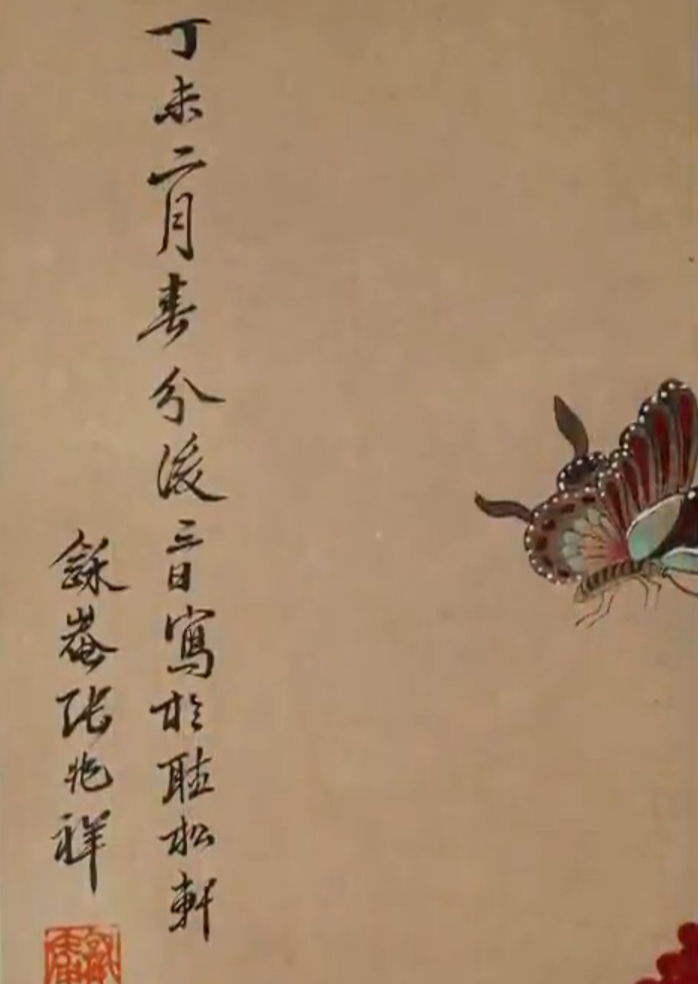 丁未二月春分後三日寫於聽松軒
龢菴張兆祥